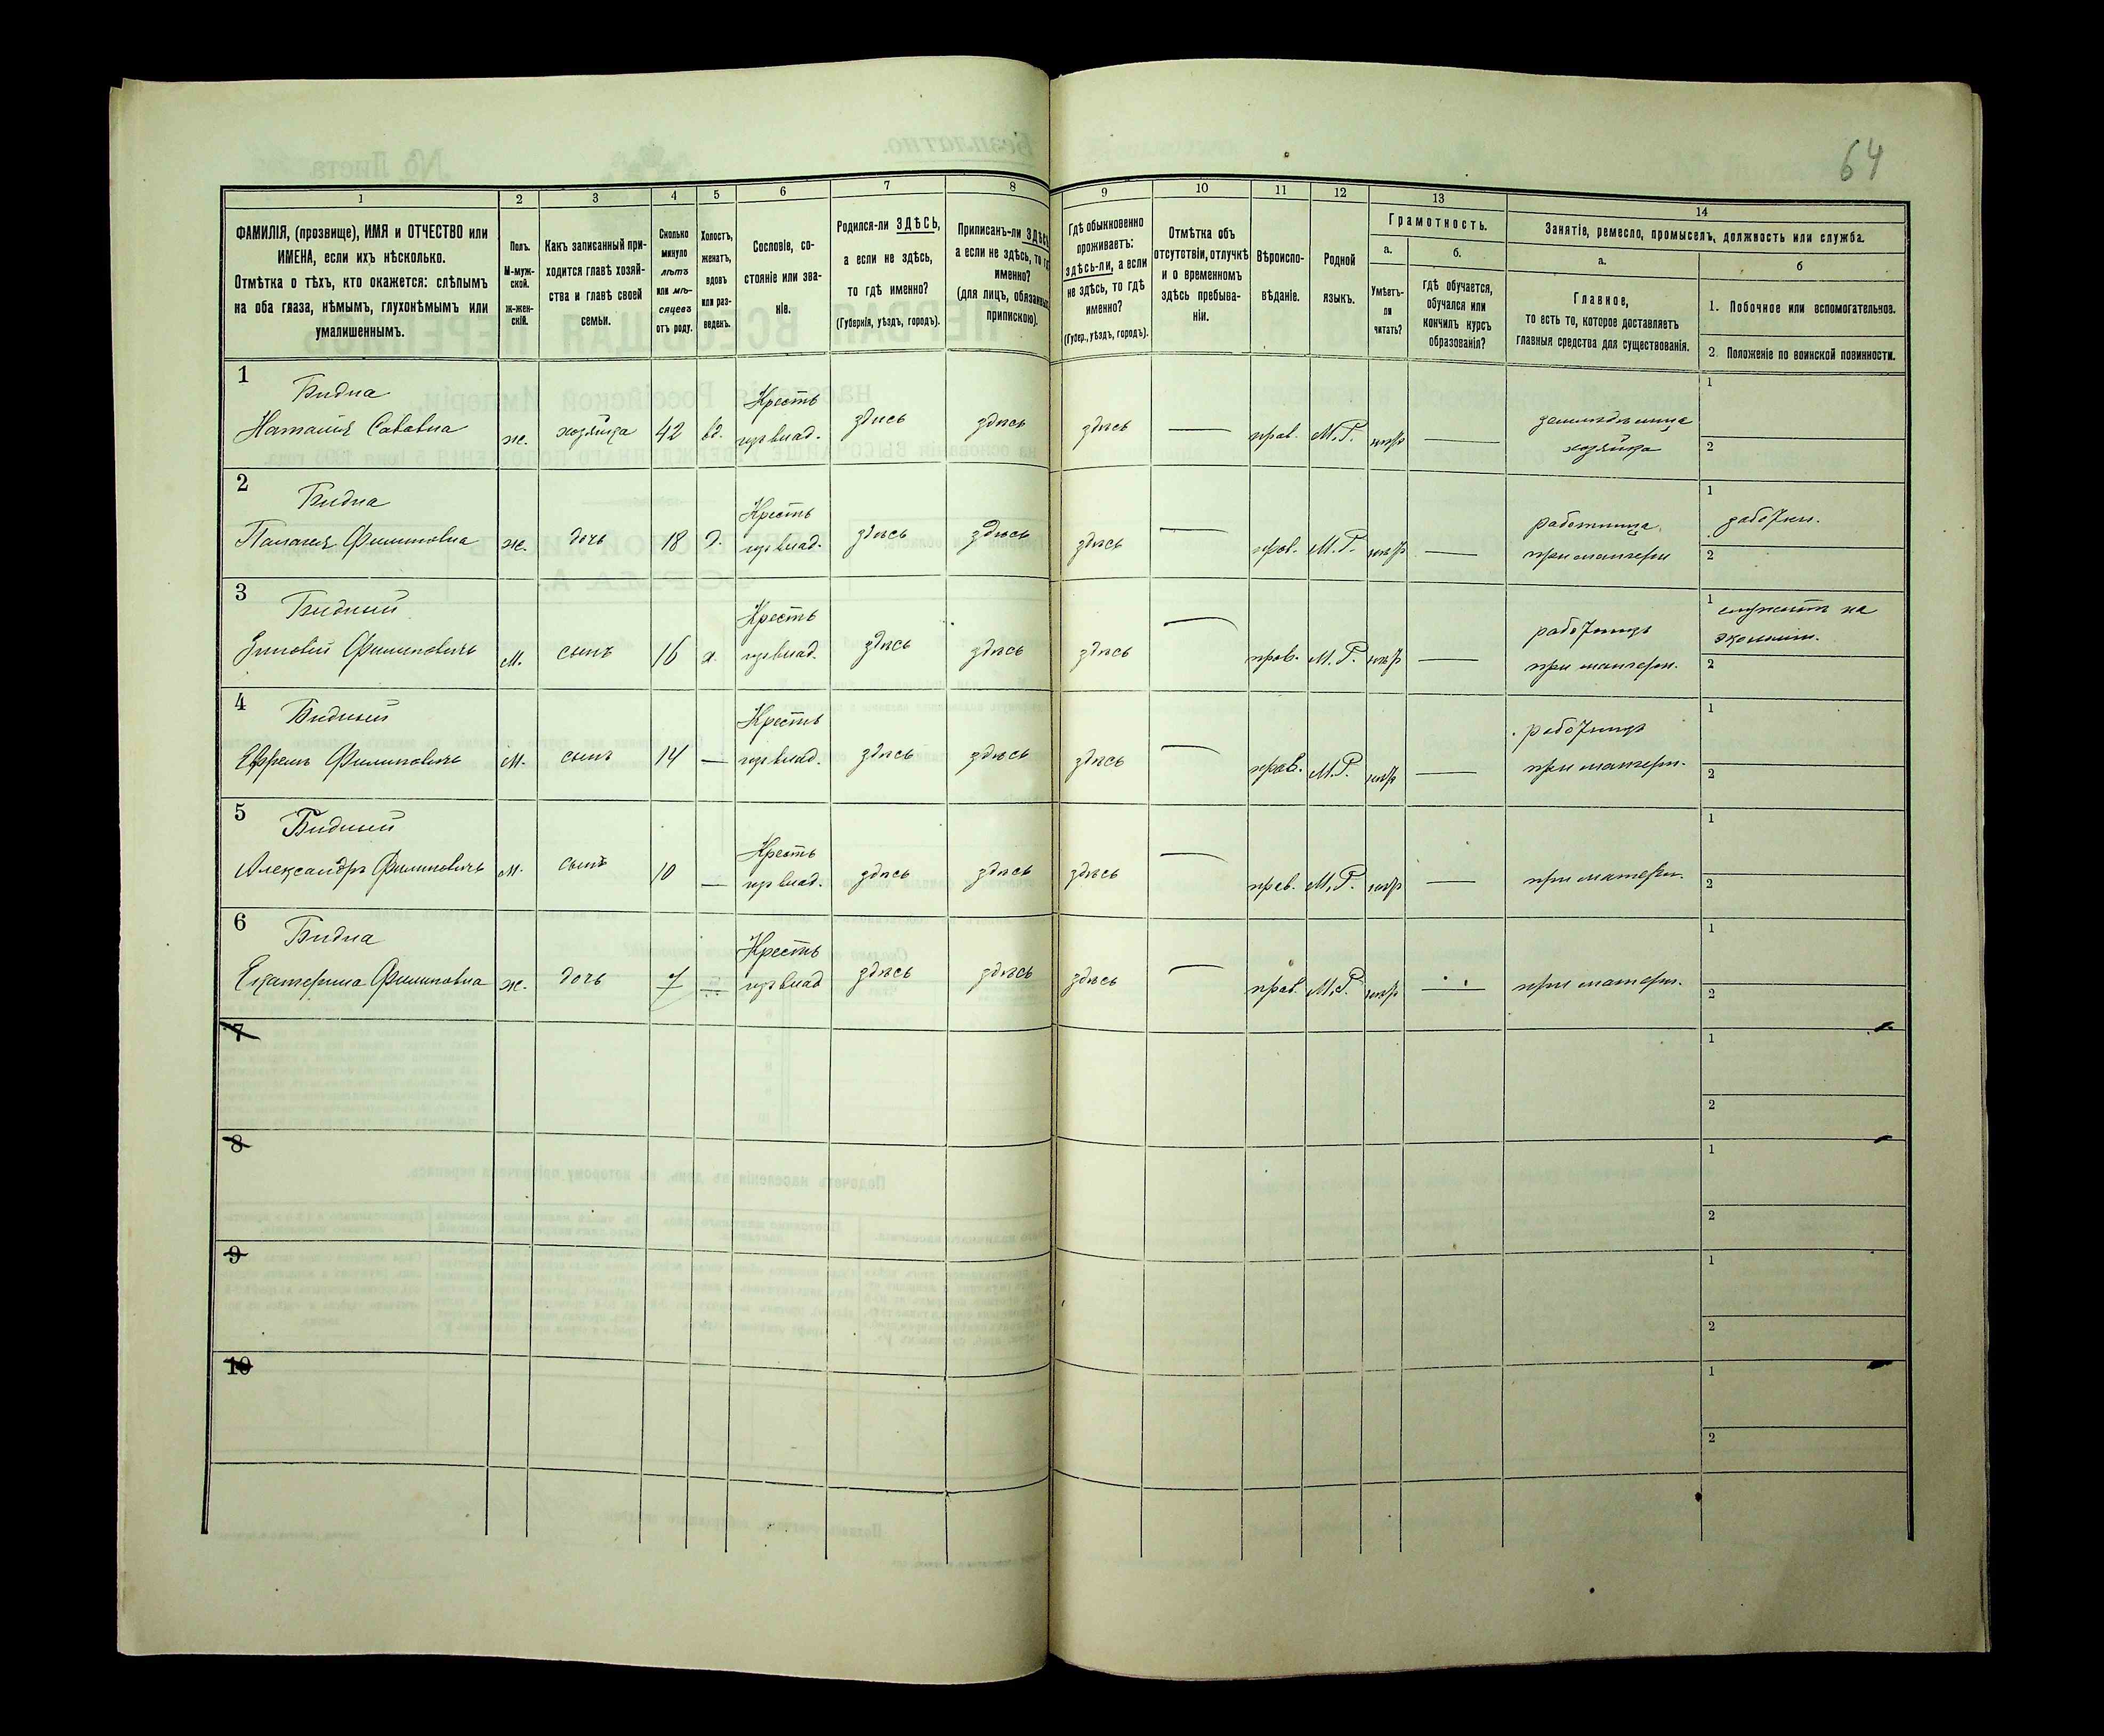 64
1 2 3 4 5 6 7 8 9 10 11 12 13 14
ФАМИЛІЯ, (прозвище), ИМЯ и ОТЧЕСТВО или
ИМЕНА, если ихъ нѣсколько.
Отмѣтка о тѣхъ, кто окажется: слѣпымъ
на оба глаза, нѣмымъ, глухонѣмымъ или
умалишеннымъ.
Полъ.
М-муж-
ской.
ж-жен-
скій.
Какъ записанный при-
ходится главѣ хозяй-
ства и главѣ своей
семьи.
Сколько
минуло
лѣтъ
или мѣ-
сяцевъ
отъ роду.
Холостъ,
женатъ,
вдовъ
или раз-
веденъ.
Сословіе, со-
стояніе или зва-
ніе.
Родился-ли ЗДѢСЬ,
а если не здѣсь,
то гдѣ именно?
(Губернія, уѣздъ, городъ).
Приписанъ-ли ЗДѢСЬ
а если не здѣсь, то гдѣ
именно?
(для лицъ, обязанныхъ
припискою).
Гдѣ обыкновенно
проживаетъ:
здѣсь-ли, а если
не здѣсь, то гдѣ
именно?
(Губер., уѣздъ, городъ).
Отмѣтка объ
отсутствіи, отлучкѣ
и о временномъ
здѣсь пребыва-
ніи.
Вѣроиспо-
вѣданіе.
Родной
языкъ.
Грамотность.
а.
Умѣетъ-
ли
читать?
б.
Гдѣ обучается,
обучался или
кончилъ курсъ
образованія?
Занятіе, ремесло, промыселъ, должность или служба.
а.
Главное,
то есть то, которое доставляетъ
главныя средства для существованія.
б
1. Побочное или вспомогательное.
2. Положеніе по воинской повинности.
1 Бидна Кресть 1
Наталия Саввична ж. хозяйка 42 вд. здѣсь здѣсь здѣсь — прав. М.Р. — земледѣлица
хозяйка 2
2 Бидна Кресть 1
Палагея Филиповна ж. дочь 18 д. здѣсь здѣсь здѣсь — прав. М.Р. — работница
при матери 2
3 Бидный Кресть 1 служитъ на
Филиповичъ м. сынъ 16 х. здѣсь здѣсь здѣсь — прав. М.Р. — работникъ
при матери. 2
4 Бидный Кресть 1
Ефремъ Филиповичъ м. сынъ 14 — здѣсь здѣсь здѣсь — прав. М.Р. — работникъ
при матери. 2
5 Бидный Кресть 1
Александръ Филиповичъ м. сынъ 10 — здѣсь здѣсь здѣсь — прав. М.Р. — при матери. 2
6 Бидна Кресть 1
Екатерина Филиповна ж. дочь 7 — здѣсь здѣсь здѣсь — прав. М.Р. — при матери. 2
7 1
2
8 1
2
9 1
2
10 1
2